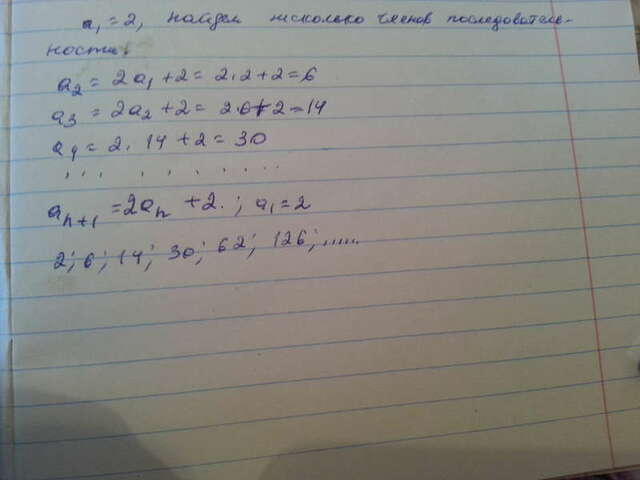 a₁ = 2, найдем несколько членов последователь-
ности:
a₂ = 2a₁ + 2 = 2.2 + 2 = 6
a₃ = 2a₂ + 2 = 2.6+2 = 14
a₄ = 2. 14 + 2 = 30
... . . . . ..
aₙ₊₁ = 2aₙ + 2. ; a₁ = 2
2; 6; 14; 30; 62; 126; ......